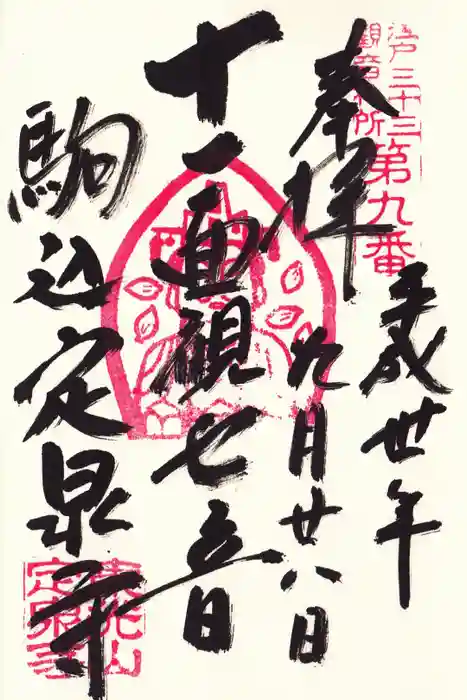 江戸三十三
観音札所
第九番
奉拝
平成丗年
九月廿八日
十一面観世音
駒込定泉寺
東光山
定泉寺